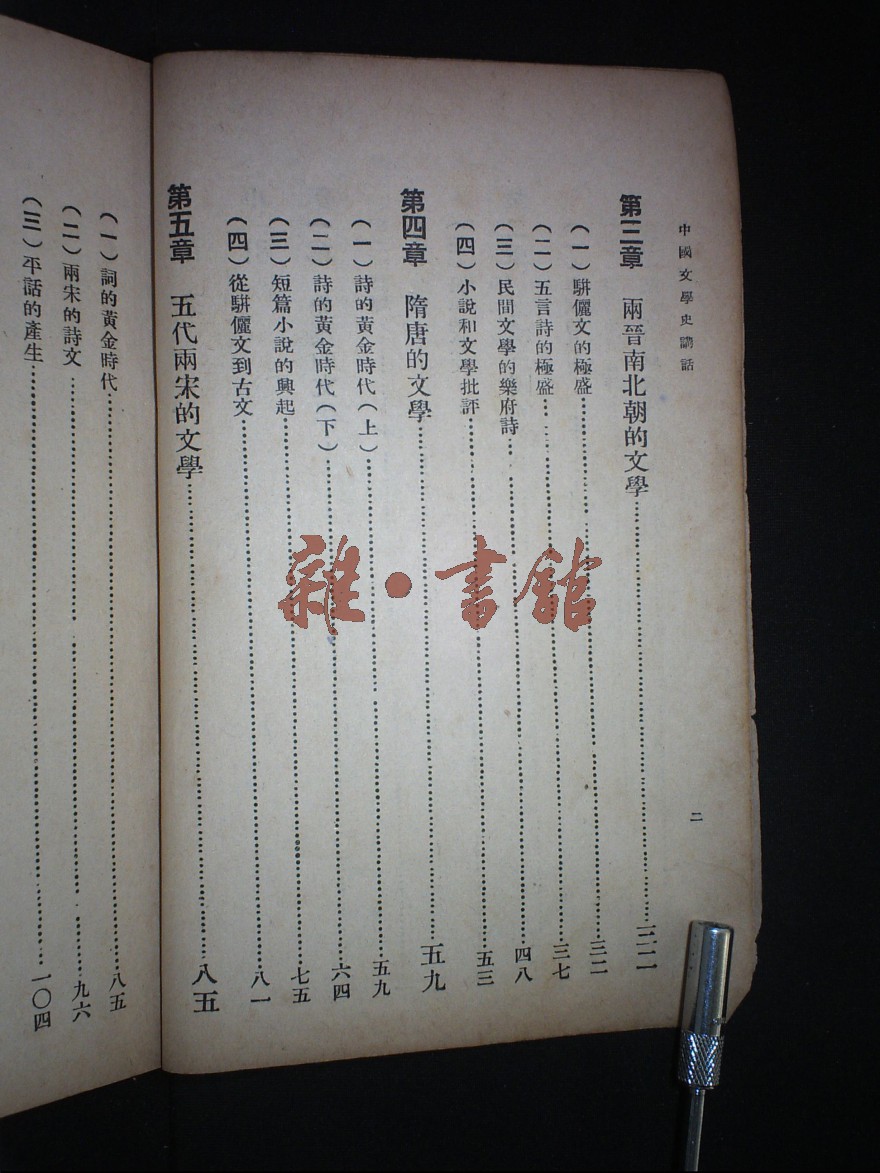 中國文學史講話
二
第三章　兩晉南北朝的文學……三二
（一）駢儷文的極盛……三二
（二）五言詩的極盛……三七
（三）民間文學的樂府詩……四八
（四）小說和文學批評……五三
第四章　隋唐的文學……五九
（一）詩的黃金時代（上）……五九
（二）詩的黃金時代（下）……六四
（三）短篇小說的興起……七五
（四）從駢儷文到古文……八一
第五章　五代兩宋的文學……八五
（一）詞的黃金時代……八五
（二）兩宋的詩文……九六
（三）平話的產生……一〇四
雜·書館